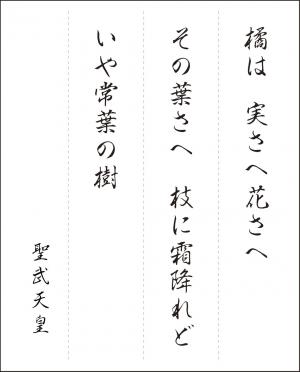 橘は　実さへ花さへ
その葉さへ　枝に霜降れど
いや常葉の樹
聖武天皇